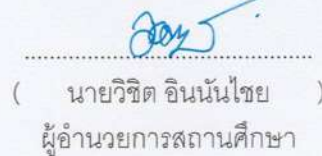 ( นายวิชิต อินนันไชย )
ผู้อำนวยการสถานศึกษา